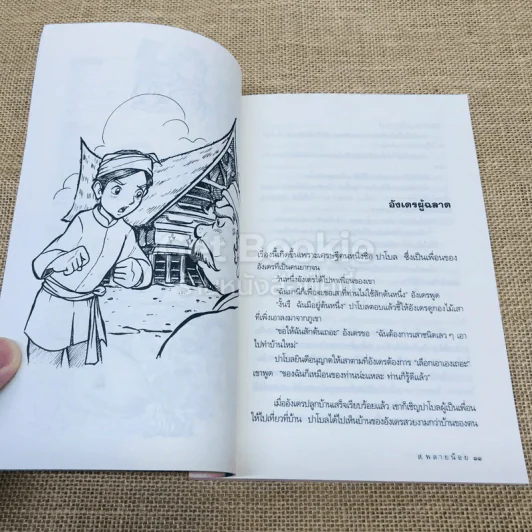 อังเดรผู้ฉลาด
เรื่องนี้เกิดขึ้นเพราะเศรษฐีคนหนึ่งชื่อ ปาโบล ซึ่งเป็นเพื่อนของ
อังเดรที่เป็นคนยากจน
วันหนึ่งอังเดรได้ไปหาเพื่อนของเขา
"ฉันมานี่ก็เพื่อจะขอเสาที่ท่านไม่ใช้สักต้นหนึ่ง" อังเดรพูด
"งั้นรึ ฉันมีอยู่ต้นหนึ่ง" ปาโบลตอบแล้วชี้ให้อังเดรดูกองไม้เสา
ที่เพิ่งเอาลงมาจากภูเขา
"ขอให้ฉันสักต้นเถอะ" อังเดรขอ "ฉันต้องการเสาชนิดเลว ๆ เอา
ไปทำบ้านใหม่"
ปาโบลยินดีอนุญาตให้เสาตามที่อังเดรต้องการ "เลือกเอาเองเถอะ"
เขาพูด "ของฉันก็เหมือนของท่านน่ะแหละ ท่านก็รู้ดีแล้ว"
เมื่ออังเดรปลูกบ้านเสร็จเรียบร้อยแล้ว เขาก็เชิญปาโบลผู้เป็นเพื่อน
ให้ไปเที่ยวที่บ้าน ปาโบลได้ไปเห็นบ้านของอังเดรสวยงามกว่าบ้านของตน
ส. พลายน้อย ๑๑